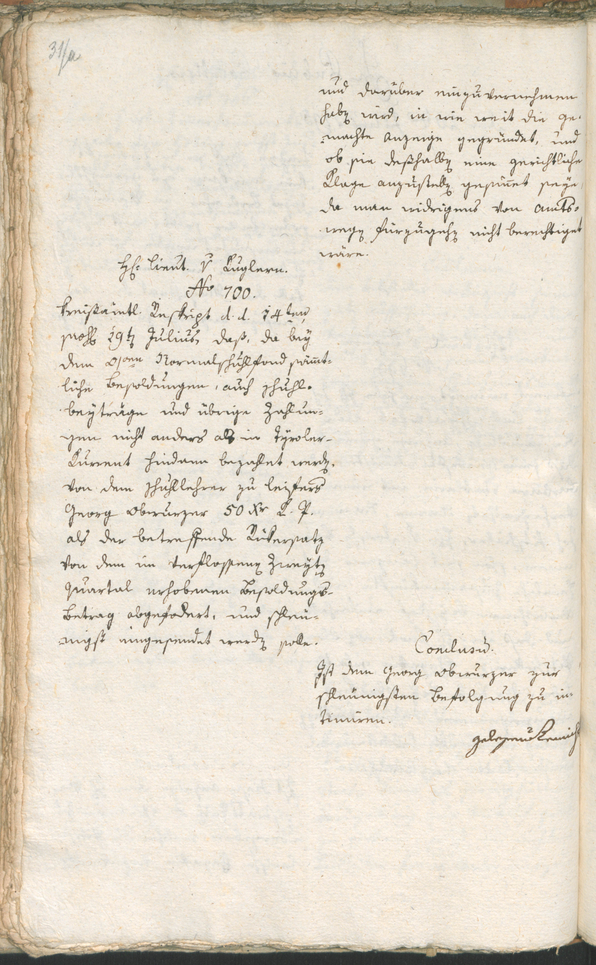 31/a
und darüber einzuvernehmen
habe, wird, in wie weit die ge-
machte Anzeige gegründet, und
ob sie deßhalb eine gerichtliche
Klage anzustelle gesinnet seye
da man widrigens von Amts-
wege fürzugehe nicht berechtiget
wäre.
H: Lieut. v Kuglern.
No 700.
Kreißämtl. Reskript d. d. 14ten
29t Julius, daß, da bey
dem Normalschuhlfond sämt-
liche Besoldungen, auch schuhl-
beyträge und übrige Zahlun-
gen nicht anders als in Tyroler-
Kurrent hindann bezahlet werde,
von dem Schullehrer zu Leifers
Georg Obwurzer 50 Xr K. P.
als der betreffende Rükersatz
von dem im verflossene Zweyte
Quartal erhobenen Besoldungs-
betrag abgefodert, und schleu-
nigst eingesendet werde solle.
Conclusu.
Ist dem Georg Obwurzer zur
schleunigsten Befolgung zu in-
timiren.